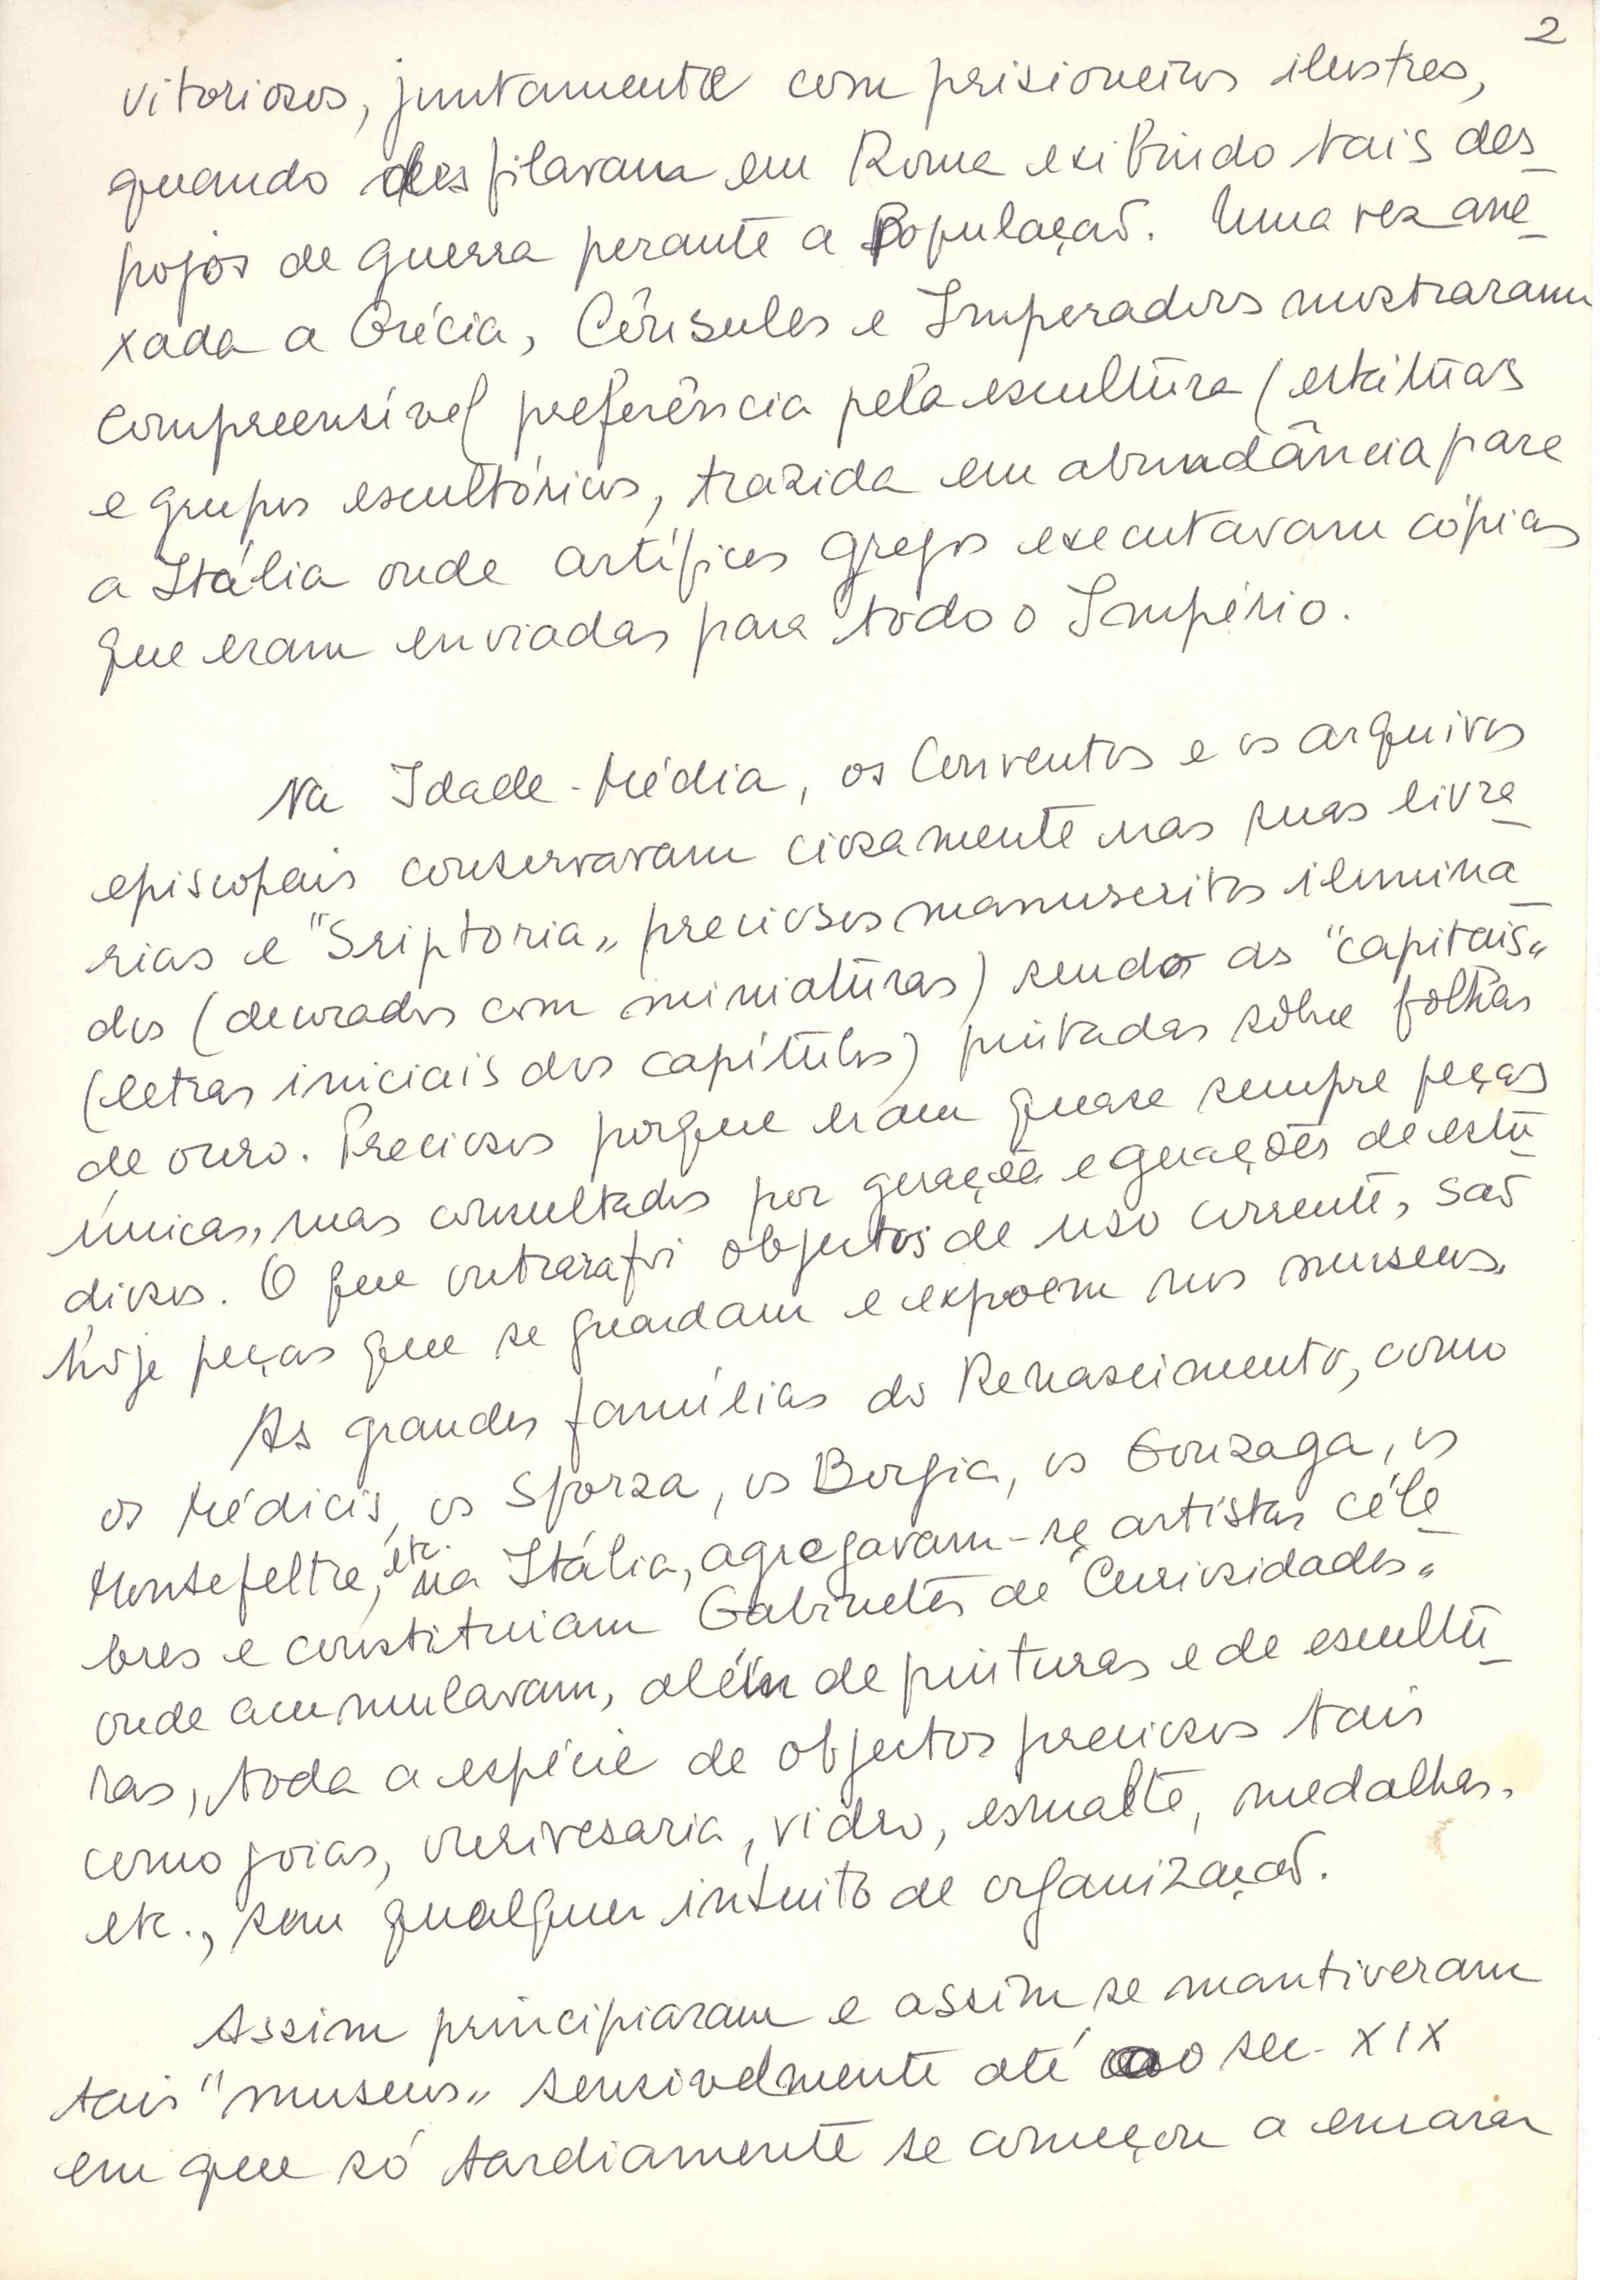 2
vitoriosos, juntamente com prisioneiros ilustres,
quando desfilavam em Roma exibindo tais des_
pojos de guerra perante a População. Uma vez ane_
xada a Grécia, Cônsules e Imperadores mostraram
compreensível preferência pela escultura (estátuas
e grupos escultóricos, trazida em abundância para
a Itália onde artífices gregos executavam cópias
que eram enviadas para todo o Império.
Na Idade-Média, os Conventos e os arquivos
episcopais conservavam ciosamente nas suas livra_
rias e "Sriptoria" preciosos manuscritos ilumina_
dos (decorados com miniaturas) sendo as "capitais"
(letras iniciais dos capítulos) pintadas sôbre fôlhas
de ouro. Preciosos porque eram quase sempre peças
únicas, mas consultados por gerações e gerações de estu_
diosos. O que outrora foi objectos de uso corrente, são
hoje peças que se guardam e expoem nos museus.
As grandes famílias do Renascimento, como
os Médicis, os Sforza, os Borgia, os Gonzaga, os
Montefeltre, etc. na Itália, agregavam-se artistas céle_
bres e constituiam Gabinetes de Curiosidades"
onde acumulavam, além de pinturas e de escultu_
ras, toda a espécie de objectos preciosos tais
como joias, ourivesaria, vidro, esmalte, medalhas,
etc., sem qualquer intuito de organização.
Assim principiaram e assim se mantiveram
tais "museus" sensivelmente até ao sec. XIX
em que só tardiamente se começou a encarar